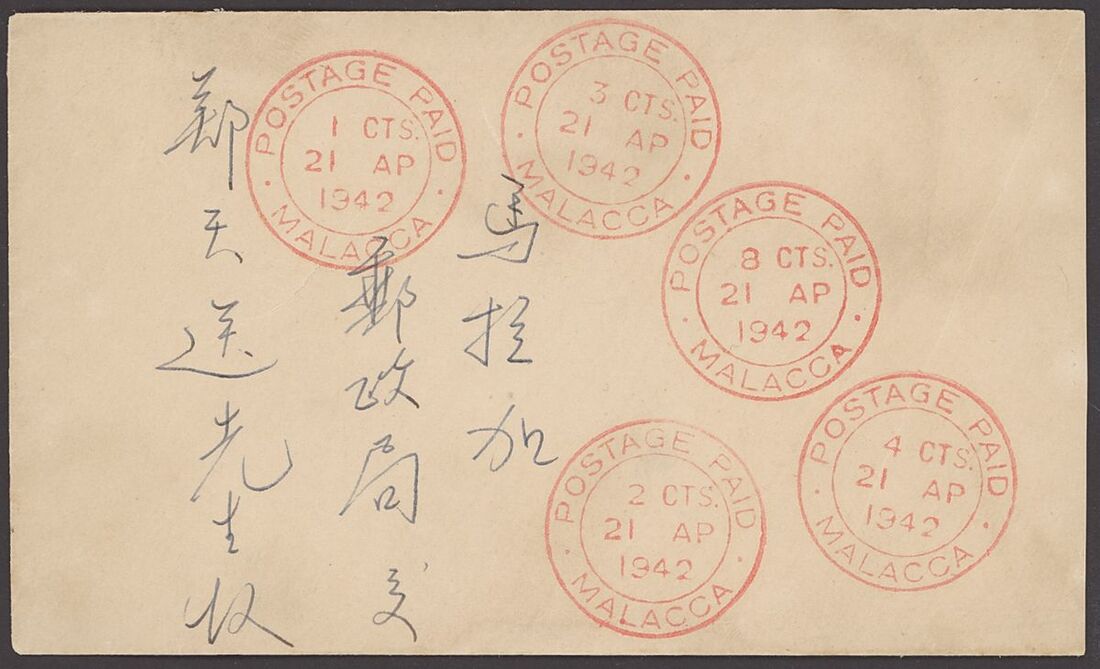 POSTAGE PAID
1 CTS.
21 AP
1942
MALACCA
POSTAGE PAID
3 CTS.
21 AP
1942
MALACCA
POSTAGE PAID
8 CTS.
21 AP
1942
MALACCA
POSTAGE PAID
4 CTS.
21 AP
1942
MALACCA
POSTAGE PAID
2 CTS.
21 AP
1942
MALACCA
馬拉加
郵政局交
鄭天送先生收